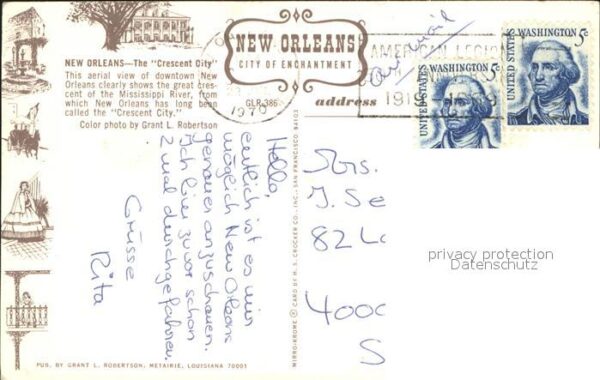 NEW ORLEANS—The "Crescent City"
This aerial view of downtown New
Orleans clearly shows the great cres-
cent of the Mississippi River, from
which New Orleans has long been
called the "Crescent City."
Color photo by Grant L. Robertson
NEW ORLEANS
CITY OF ENCHANTMENT
GLR-386
address
1970
AMERICAN LEGION
1919
Air mail
UNITED STATES
WASHINGTON 5c
UNITED STATES
WASHINGTON 5c
Hallo,
endlich ist es mir
möglich New Orleans
genauer anzuschauen.
Ich bin zuvor schon
2 mal durchgefahren.
Grüsse
Rita
MIRRO-KROME ® CARD OF H. S. CROCKER CO., INC., SAN FRANCISCO 94103
J. Se
82
4000
S
privacy protection
Datenschutz
PUB. BY GRANT L. ROBERTSON, METAIRIE, LOUISIANA 70001